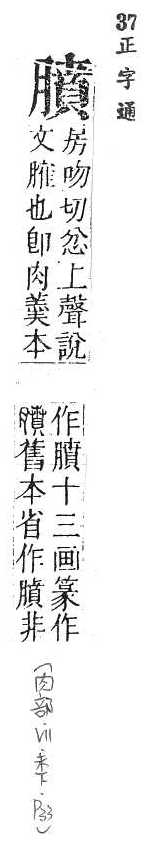 37 正字通
膹
房吻切忿上聲說
文臛也卽肉羹本
作膹十三画篆作
舊本省作膹非
(肉部.VII.未下.P33)